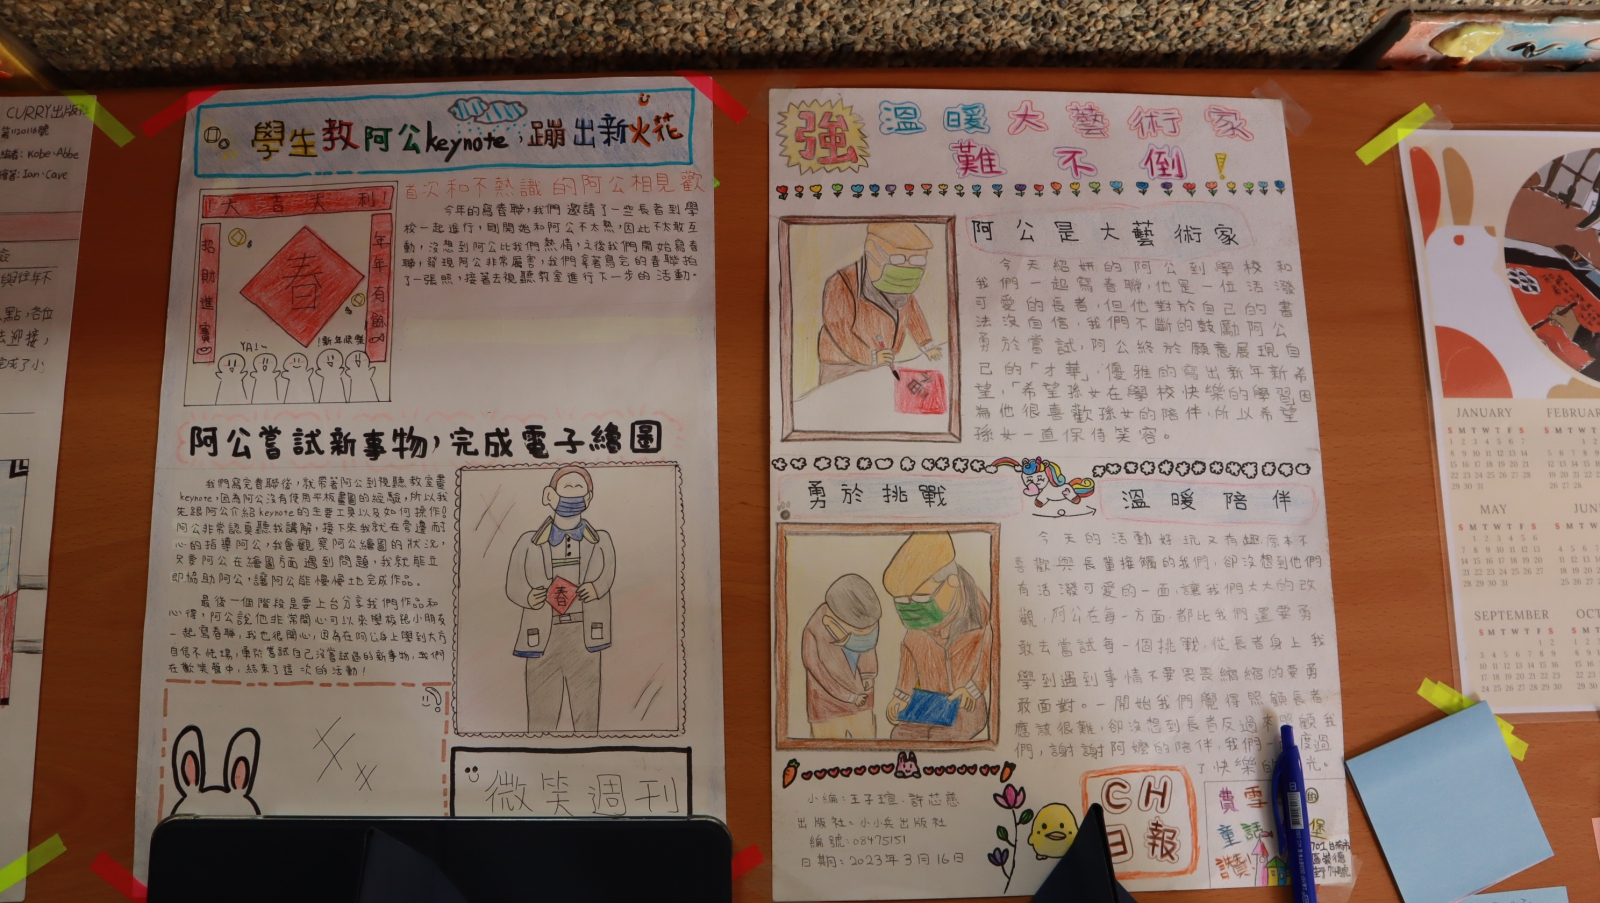 CURRY出版社
第1120116號
編者：Kobe、Abbe
繪者：Ian、Cave
與往年不
點，各位
法迎接，
完成了小
學生教阿公keynote，蹦出新火花
首次和不熟識的阿公相見歡
！大吉大利！
招財進寶
年年有餘
春
YA!~
!新年快樂
今年的寫春聯，我們邀請了一些長者到學
校一起進行，剛開始和阿公不太熟，因此不太敢互
動，沒想到阿公比我們熱情，之後我們開始寫春
聯，發現阿公非常厲害，我們拿著寫完的春聯拍
了一張照，接著去視聽教室進行下一步的活動。
阿公嘗試新事物，完成電子繪圖
我們寫完春聯後，就帶著阿公到視聽教室畫
keynote，因為阿公沒有使用平板畫圖的經驗，所以我
先跟阿公介紹keynote的主要工具以及如何操作！
阿公非常認真聽我講解，接下來我就在旁邊耐
心的指導阿公，我會觀察阿公繪圖的狀況，
只要阿公在繪圖方面遇到問題，我就能立
即協助阿公，讓阿公能慢慢地完成作品。
最後一個階段是要上台分享我們作品和
心得，阿公說他非常開心可以來學校跟小朋友
一起寫春聯，我也很開心，因為在阿公身上學到大方
自信不怯場，勇於嘗試自己沒嘗試過的新事物，我們
在歡笑聲中，結束了這次的活動！
春
微笑週刊
強
溫暖大藝術家
難不倒！
阿公是大藝術家
今天紹妍的阿公到學校和
我們一起寫春聯，他是一位活潑
可愛的長者，但他對於自己的書
法沒自信，我們不斷的鼓勵阿公
勇於嘗試，阿公終於願意展現自
己的「才華」，優雅的寫出新年新希
望，「希望孫女在學校快樂的學習」因
為他很喜歡孫女的陪伴，所以希望
孫女一直保侍笑容。
勇於挑戰
溫暖陪伴
今天的活動好玩又有趣，原本不
喜歡與長輩接觸的我們，卻沒想到他們
有活潑可愛的一面，讓我們大大的改
觀，阿公在每一方面都比我們還要勇
敢去嘗試每一個挑戰，從長者身上我
學到遇到事情不要畏畏縮縮的要勇
敢面對。一開始我們覺得照顧長者
應該很難，卻沒想到長者反過來照顧我
們，謝謝阿嬤的陪伴，我們一起度過
了快樂的時光。
小編：王子瑄、許芯慈
出版社：小小兵出版社
編號：08475151
日期：2023年3月16日
CH
日報
費雪
童話
堡
701台南市
JANUARY
S M T W T F S
FEBRUAR
MAY
S M T W T F S
JUN
SEPTEMBER
S M T W T F S
OCT